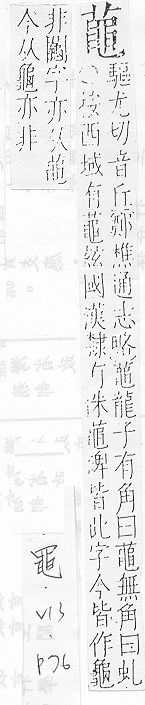 驅尤切音丘鄭樵通志略龍子有角曰無角曰虬
按西域有茲國漢隸有朱碑皆此字今皆作龜
非鬮字亦从
今从龜亦非
V13
P76